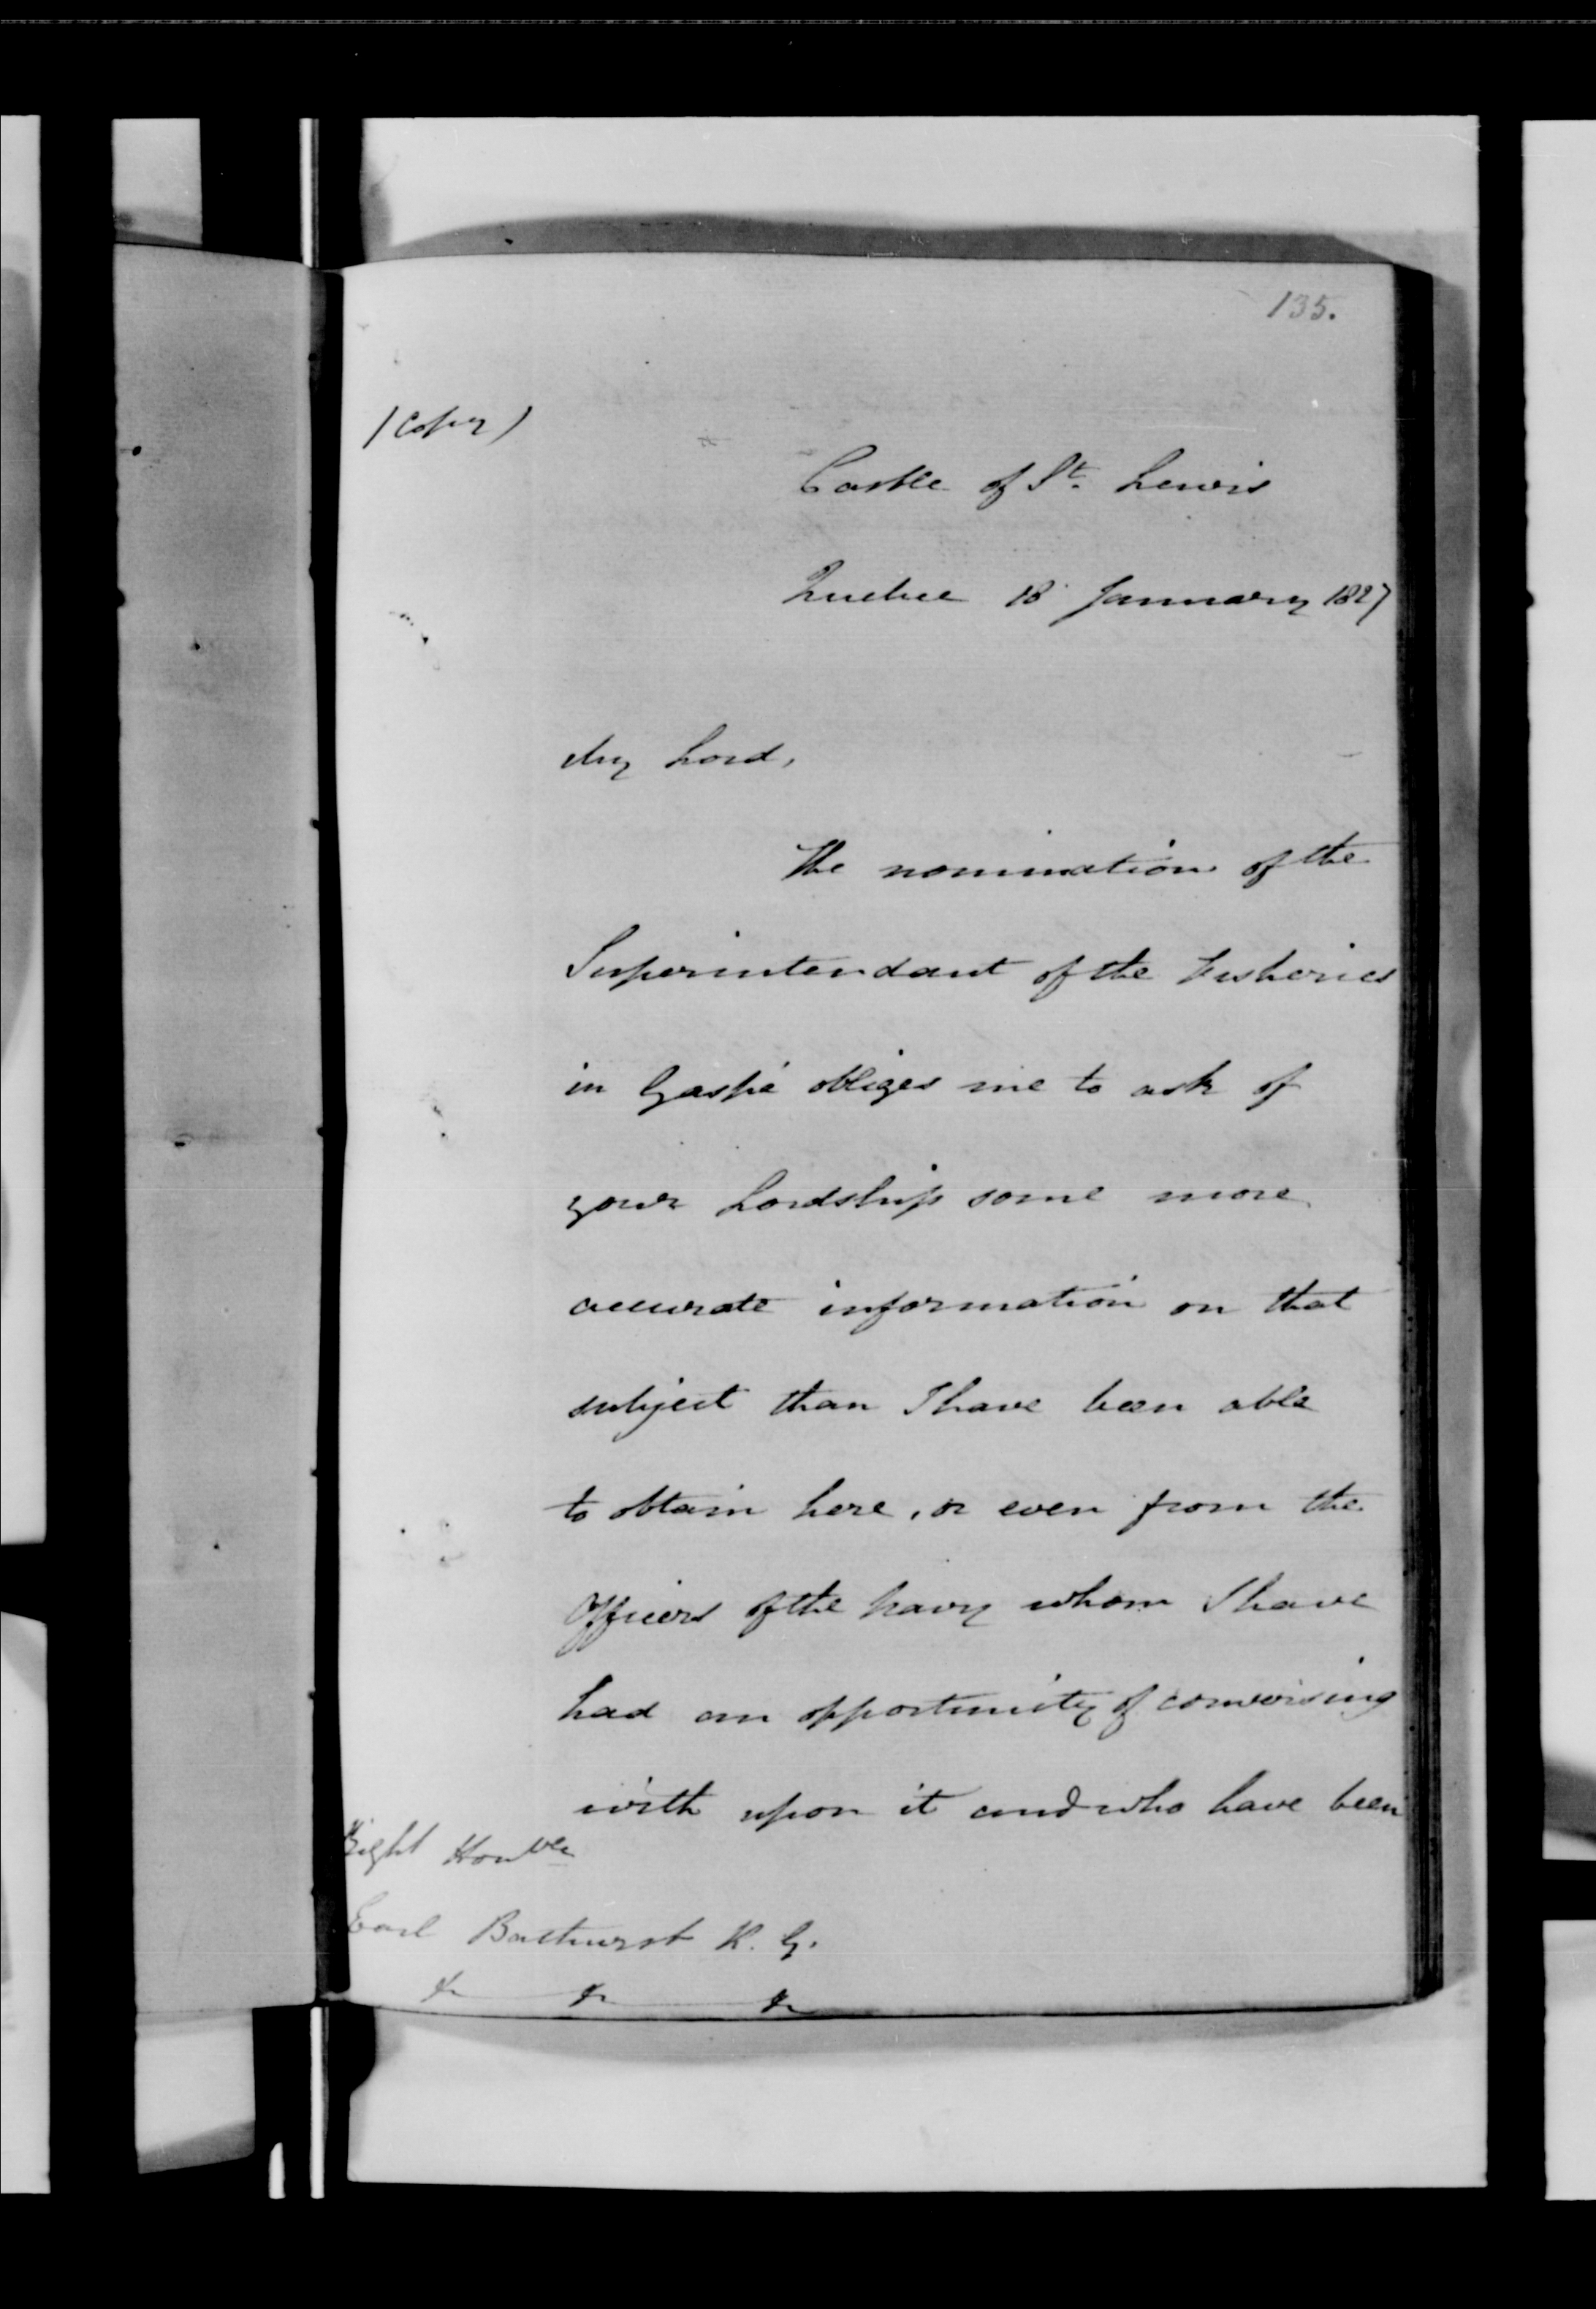 135.
(Copy)
Castle of St. Lewis
Quebec 18 January 1827
My Lord,
The nomination of the
Superintendant of the Fisheries
in Gaspé obliges me to ask of
your Lordship some more
accurate information on that
subject than I have been able
to obtain here, or even from the
Officers of the Navy whom I have
had an opportunity of conversing
with upon it and who have been
Right Honble
Earl Bathurst K. G.
&c &c &c